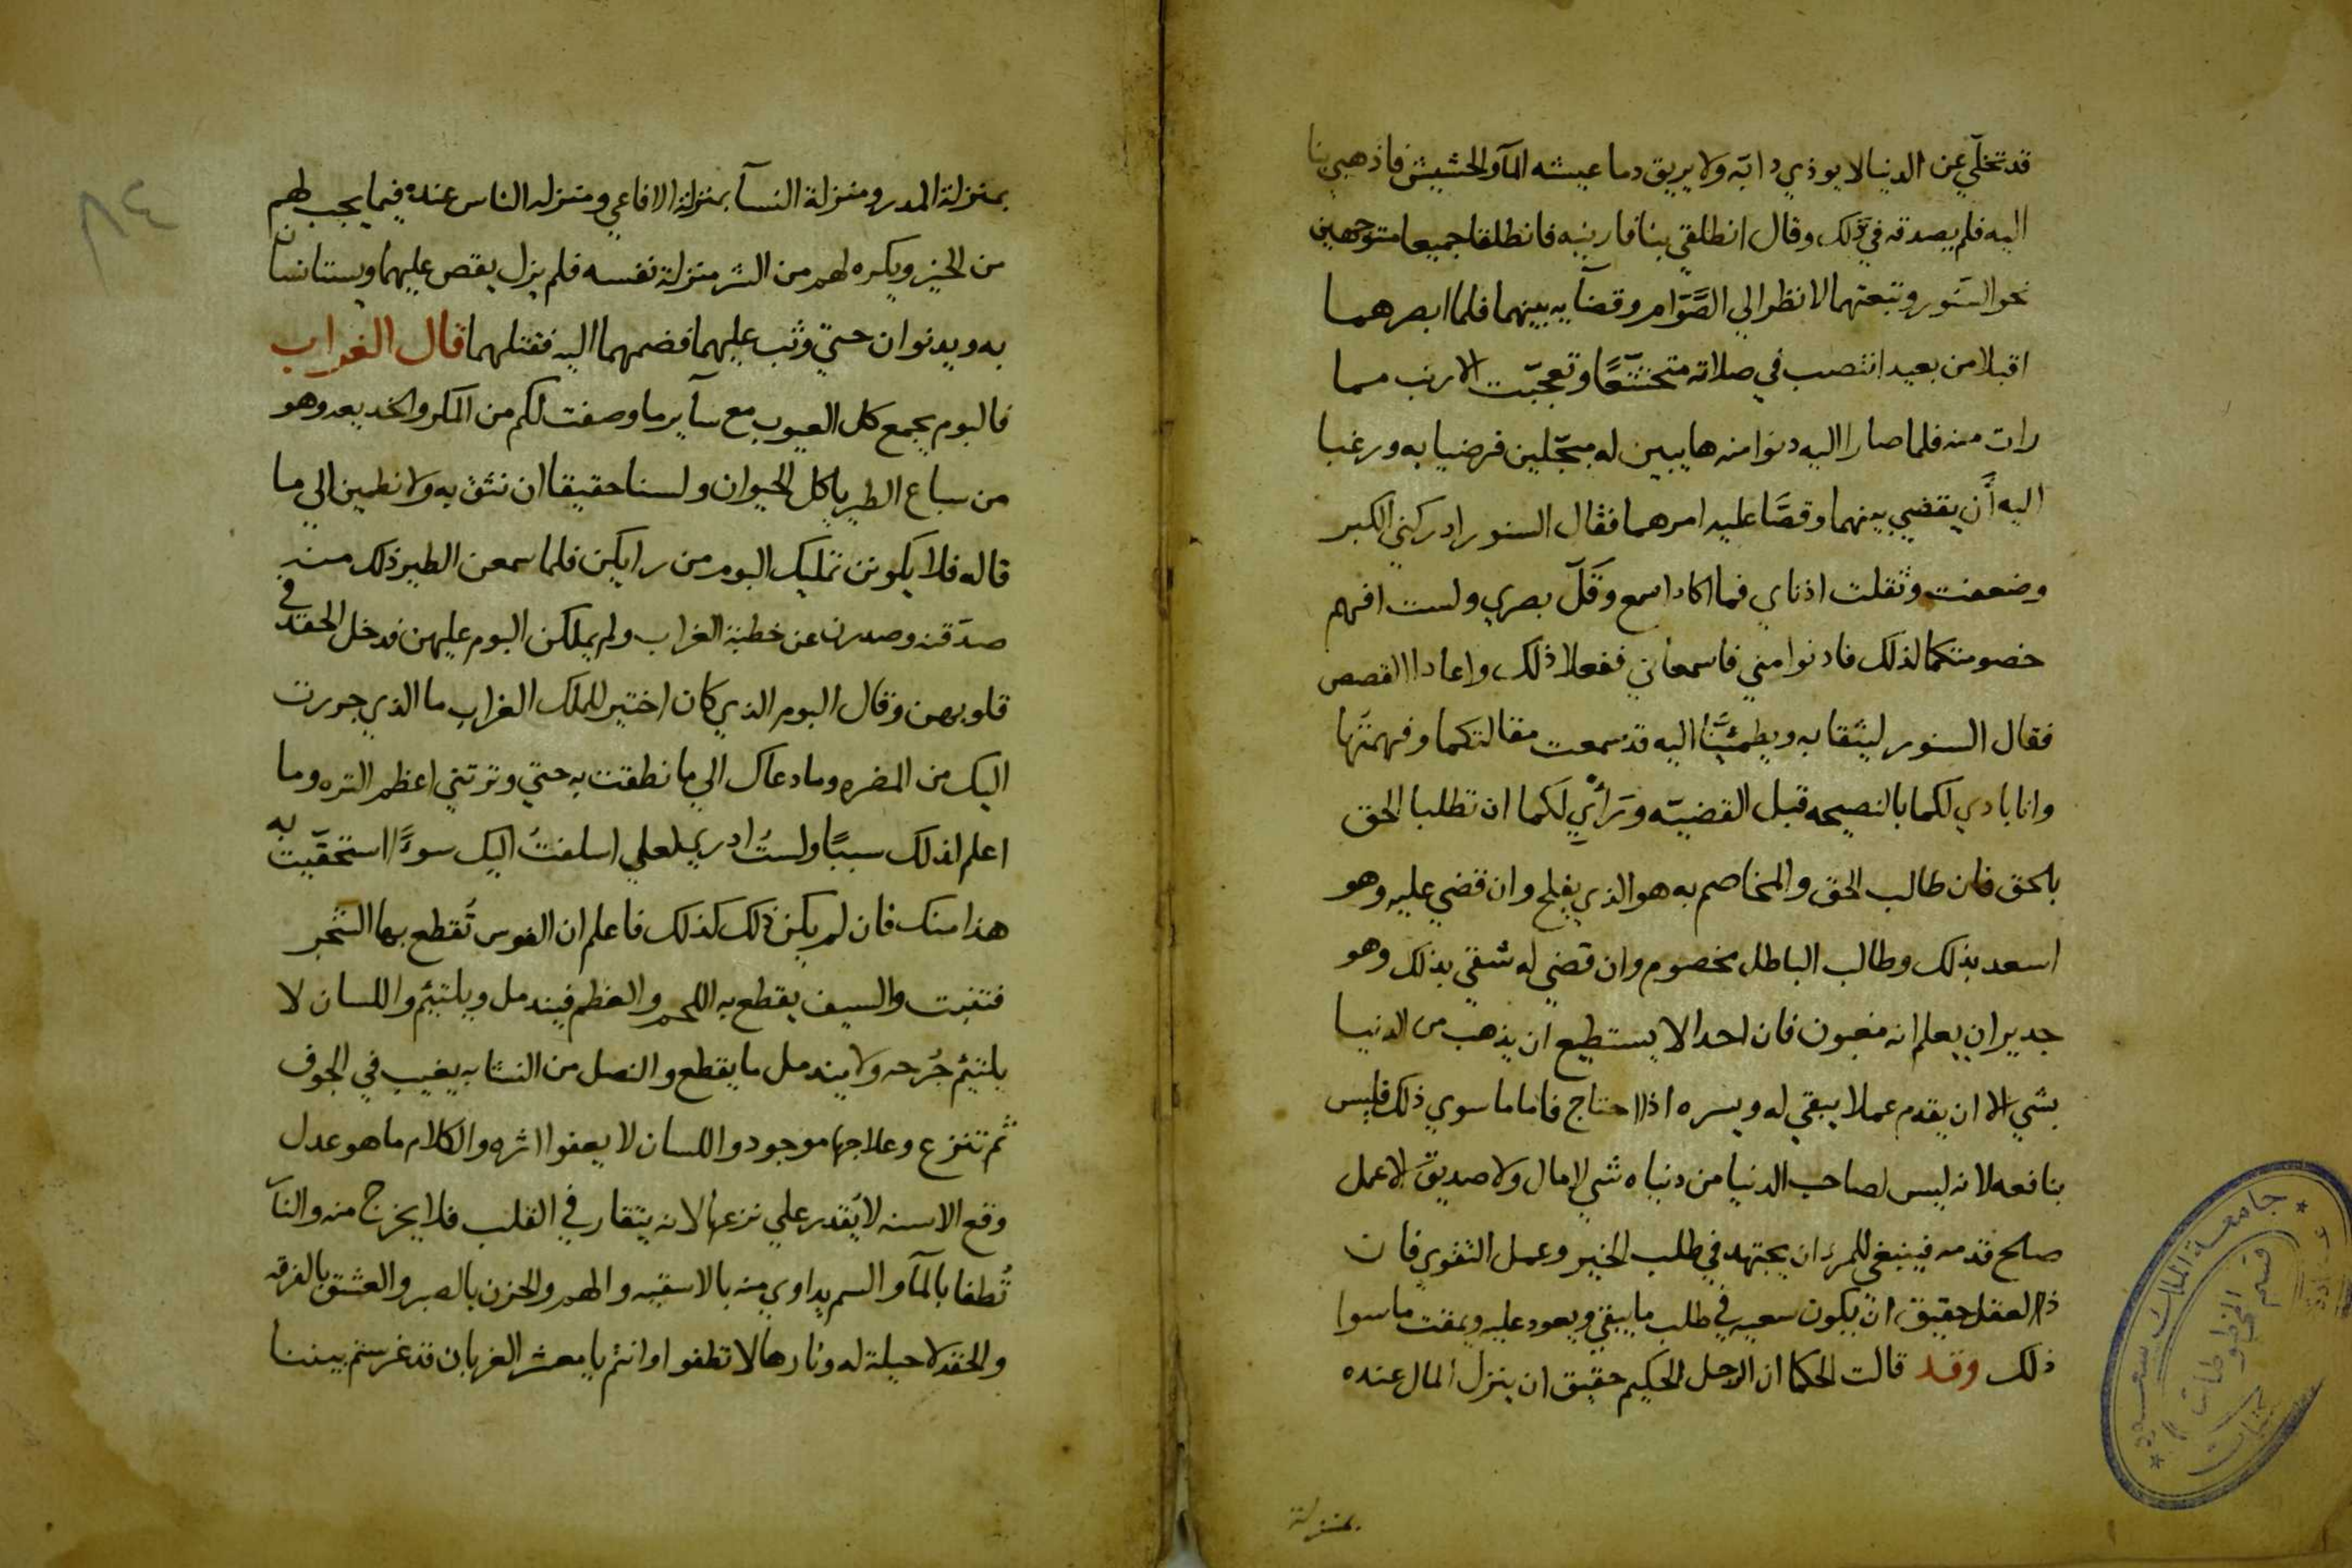 قد تخلّي عن الدنيا لا يوذي دابّه ولا يريق دما عيشه المآ والحشيش فاذهبي بنا
اليه فلم يصدقه في ذلك وقال انطلقي بنا فارينيه فانطلقا جميعا متوجهين
نحو السنور وتبعتهما لانظر الي الصَّوّام وقضآيه بينهما فلما ابصرهما
اقبلا من بعيد انتصب في صلاته متخشّعًا وتعجّبت الارنب مما
رات منه فلما صارا اليه دنوا منه هايبين له مبجّلين فرضيا به ورغبا
اليه أن يقضي بينهما وقصَّا عليه امرهما فقال السنور ادركني الكبر
وضعفت وثقلت اذناي فما اكاد اسمع وقلّ بصري ولست افهم
خصومتكما لذلك فادنوا مني فاسمعاني ففعلا ذلك واعادا القصص
فقال السنور ليثقا به ويطمئنّا اليه قد سمعت مقالتكما وفهمتها
وانا بادي لكما بالنصيحه قبل القضيّه ورَأْيي لكما ان تطلبا الحق
بالحق فان طالب الحق والمخاصم به هو الذي يفلح وان قضي عليه وهو
اسعد بذلك وطالب الباطل مخصوم وان قضي له شقي بذلك وهو
جدير ان يعلم انه مغبون فان احدا لا يستطيع ان يذهب من الدنيا
بشي الا ان يقدم عملا يبقي له ويسره اذا احتاج فاما ما سوي ذلك فليس
بنافعه لانه ليس لصاحب الدنيا من دنياه شي لا مال ولا صديق لا عمل
صالح قدمه فينبغي للمرء ان يجتهد في طلب الخير وعمل التقوي فان
ذا العقل حقيق ان يكون سعيه في طلب ما يبقي ويعود عليه ويمقت ما سوا
ذلك وقد قالت الحكما ان الرجل الحكيم حقيق ان ينزل المال عنده
بمنزلة
٨٤
بمنزلة المدر ومنزلة النسآ بمنزلة الافاعي ومنزله الناس عنده فيما يجب لهم
من الخير ويكره لهم من الشر منزلة نفسه فلم يزل يقص عليهما ويستانسان
به ويدنوان حتي وثب عليهما فضمهما اليه فقتلهما قال الغراب
فالبوم يجمع كل العيوب مع سآير ما وصفت لكم من المكر والخديعه وهو
من سباع الطير ياكل الحيوان ولسنا حقيقا ان نثق به ولا نطمين الي ما
قاله فلا يكونن تمليك البوم من رايكن فلما سمعن الطير ذلك منه
صدّقنه وصدرن عن خطبة الغراب ولم يملكن البوم عليهن فدخل الحقد في
قلوبهن وقال البوم الذي كان اختير للملك الغراب ما الذي جررت
اليك من المضره وما دعاك الي ما نطقت به حتي وترتني اعظم التره وما
اعلم لذلك سببًا ولستُ ادري لعلي اسلفتُ اليك سوءًا استحقّيت به
هذا منك فان لم يكن ذلك كذلك فاعلم ان الفوس تُقطع بها الشجر
فتنبت والسيف يقطع به اللحم والعظم فيندمل ويلتئم واللسان لا
يلتئم جُرحه ولا يندمل ما يقطع والنصل من النشابه يغيب في الجوف
ثم تنزع وعلاجها موجود واللسان لا يعفوا اثره والكلام ما هو عدل
وقع الاسنه لا يُقدر علي نزعها لانه يتقار في القلب فلا يخرج منه والنآر
تُطفا بالمآ والسم يداوي منه بالاسقيه والهم والحزن بالصبر والعشق بالفرقه
والحقد لا حيلة له ونارها لا تطفوا وانتم يا معشر الغربان قد غرستم بيننا
جامعة الملك سعود
قسم المخطوطات